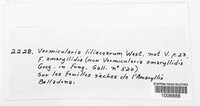 2228. Vermicularia liliacearum West. not V. p. 27.
F. amaryllidis (non Vermicularia amaryllidis
Grog. in fung. Gall. n° 520)
Sur les feuilles sèches de l'Amaryllis
Belladona.
1008888